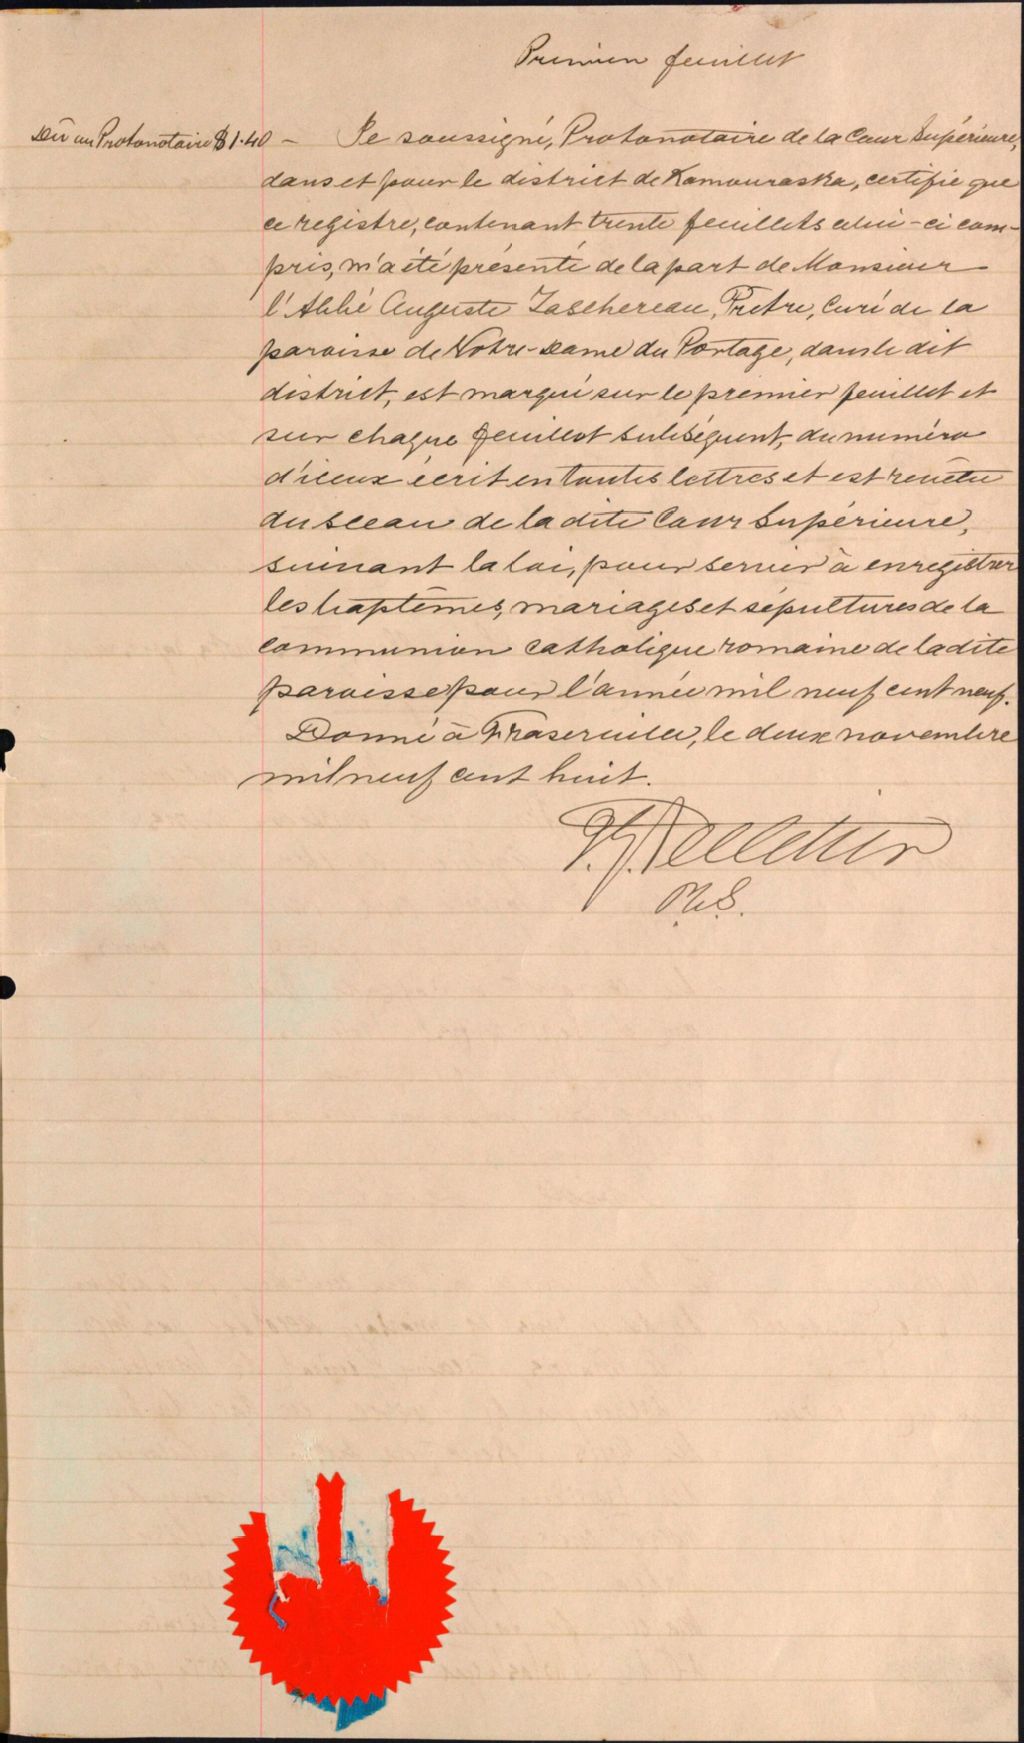 Premier feuillet
Dû au Protonotaire $1.40 — Je soussigné, Protonotaire de la Cour Supérieure,
dans et pour le district de Kamouraska, certifie que
ce registre, contenant trente feuillets celui-ci com-
pris, m'a été présenté de la part de Monsieur
l'Abbé Auguste Taschereau, Prêtre, Curé de la
paroisse de Notre-Dame du Portage, dans le dit
district, est marqué sur le premier feuillet et
sur chaque feuillet subséquent, du numéro
d'iceux écrit en toutes lettres et est revêtu
du sceau de la dite Cour Supérieure,
suivant la loi, pour servir à enregistrer
les baptêmes, mariages et sépultures de la
communion catholique romaine de la dite
paroisse pour l'année mil neuf cent neuf.
Donné à Fraserville, le deux novembre
mil neuf cent huit.
Pelletier
P.C.S.